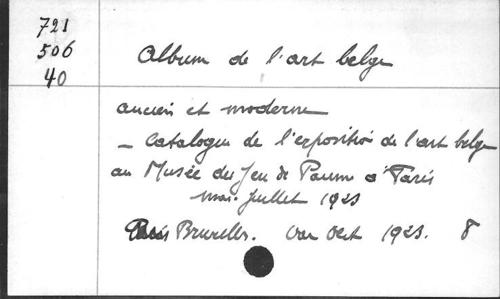 721
506
40
Album de l'art belge
ancien et moderne
- Catalogue de l'exposition de l'art belge
au Musée du Jeu de Paume à Paris
mai-juillet 1923
Bruxelles. Van Oest 1923. 8